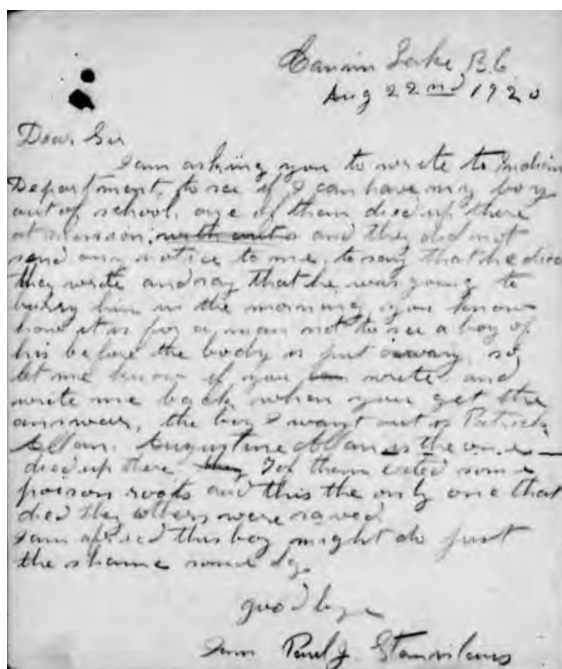 Canim Lake, B.C
Aug 22nd 1920
Dear Sir
I am asking you to write to Indian
Department, to see if I can have my boy
out of school, one of them died up there
at mission, with out and they did not
send any notice to me, to say that he died
they write and say that he was going to
burry him in the morning, you know
how it is for a man not to see a boy of
his before the body is put away, so
let me know if you write and
write me back when you get the
answear, the boy I want out is Patrick
Allan. Augustine Allan is the one
died up there. they 7 of them eated some
poison roots and this the only one that
died the others were saved
I am afried this boy might do just
the shame some dy.
good bye
I am Paul J. Stanislaus